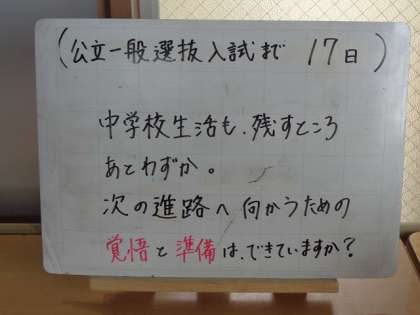 (公立一般選抜入試まで 17日)
中学校生活も、残すところ
あとわずか。
次の進路へ向かうための
覚悟と準備は、できていますか?